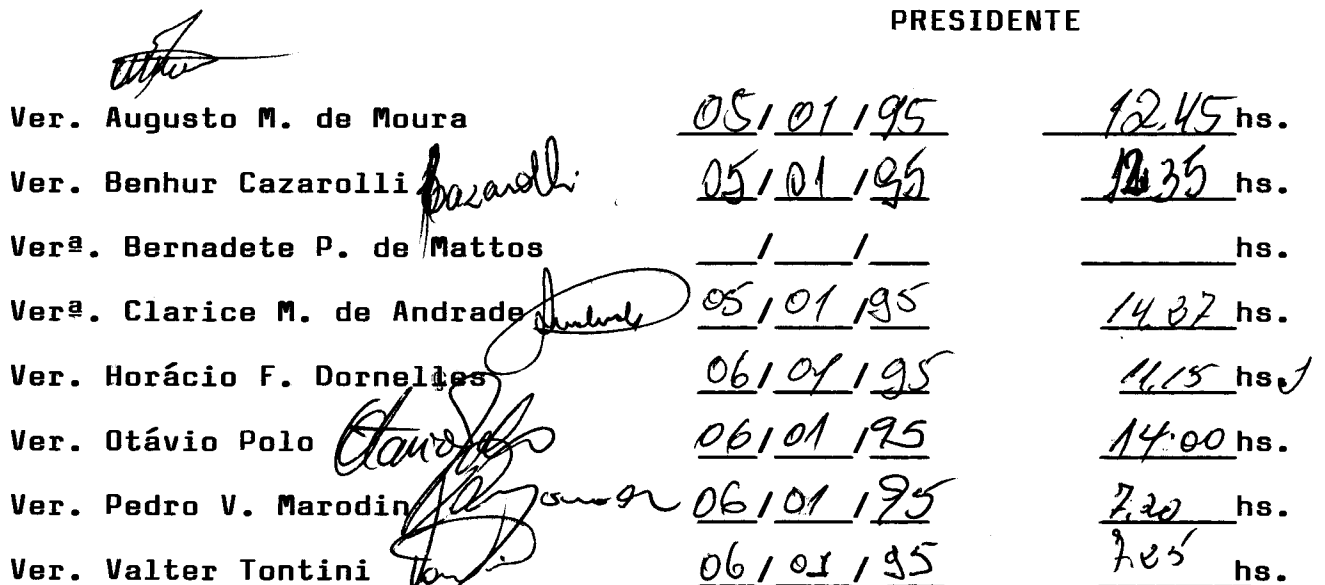 PRESIDENTE
Ver. Augusto M. de Moura 05/01/95 12.45 hs.
Ver. Benhur Cazarolli Bazarolli 05/01/95 12.35 hs.
Verª. Bernadete P. de Mattos __/__/__ ____ hs.
Verª. Clarice M. de Andrade 05/01/95 14.37 hs.
Ver. Horácio F. Dornelles 06/01/95 11,15 hs.
Ver. Otávio Polo Otavio Polo 06/01/95 14:00 hs.
Ver. Pedro V. Marodin 06/01/95 7.20 hs.
Ver. Valter Tontini 06/01/95 7.25 hs.